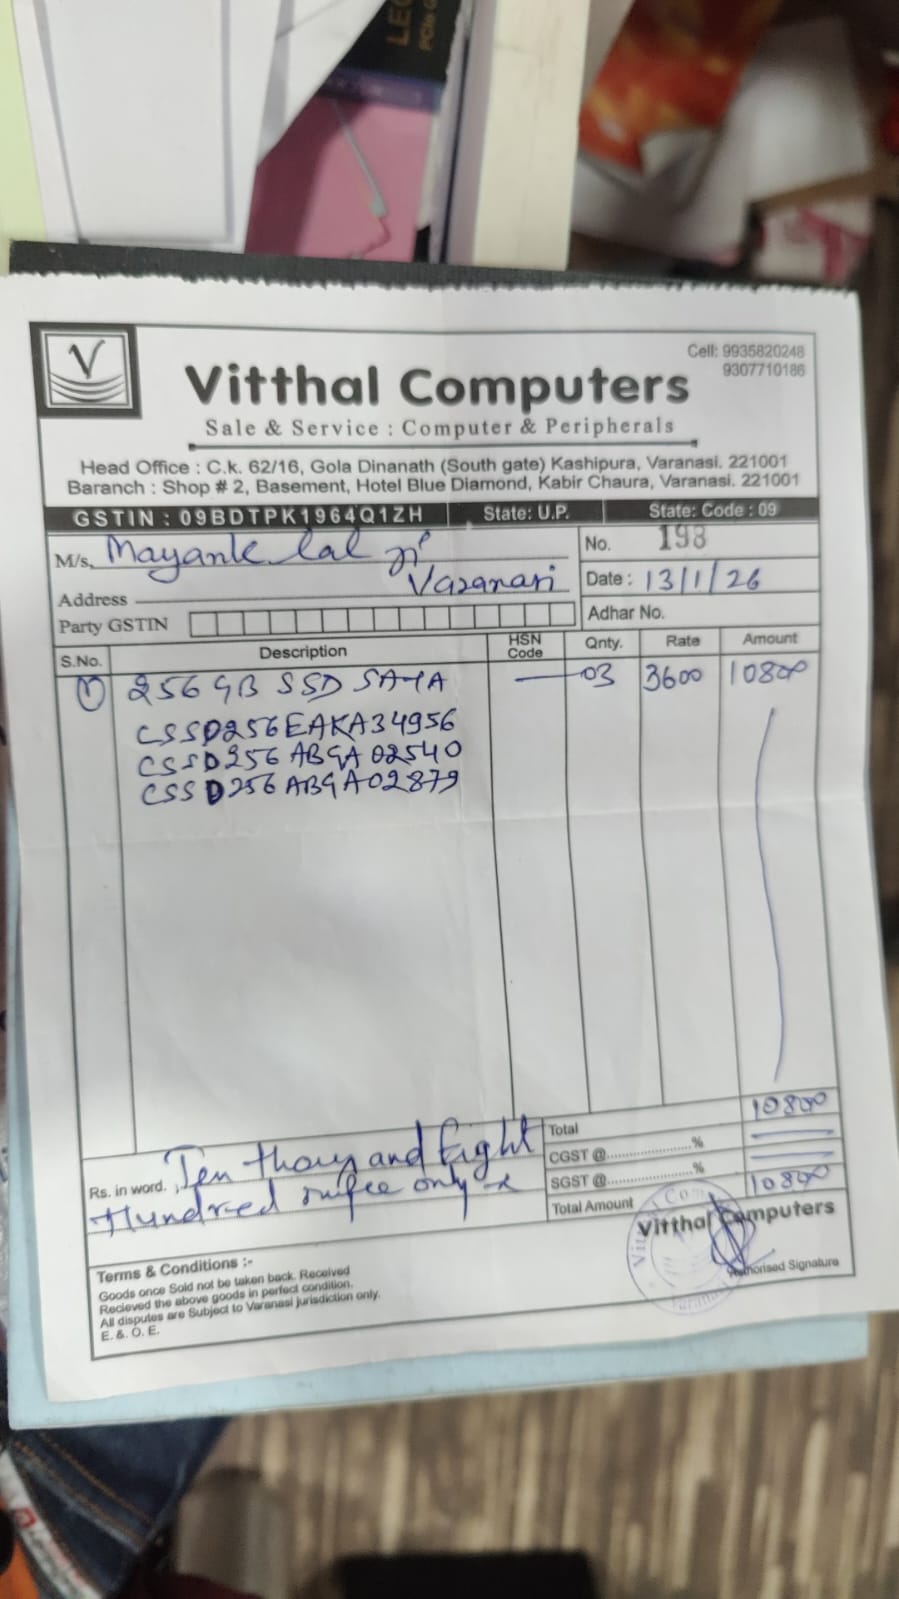 LEG
PCIe G
V
Cell: 9935820248
9307710186
Vitthal Computers
Sale & Service : Computer & Peripherals
Head Office : C.k. 62/16, Gola Dinanath (South gate) Kashipura, Varanasi. 221001
Baranch : Shop # 2, Basement, Hotel Blue Diamond, Kabir Chaura, Varanasi. 221001
GSTIN : 09BDTPK1964Q1ZH State: U.P. State: Code : 09
M/s, Mayank lal ji No. 198
Varanasi Date : 13/1/26
Address
Party GSTIN Adhar No.
S.No. Description HSN Code Qnty. Rate Amount
1 256 GB SSD SATA — 03 3600 10800
CSSD256EAKA34956
CSSD256ABGA02540
CSSD256ABGA02879
Total 10800
CGST @ ........................%
SGST @ ........................%
Total Amount 10800
Rs. in word. Ten thousand Eight
Hundred rupee only
Vitthal Computers
Authorised Signature
Terms & Conditions :-
Goods once Sold not be taken back. Received
Recieved the above goods in perfect condition.
All disputes are Subject to Varanasi jurisdiction only.
E. & O. E.